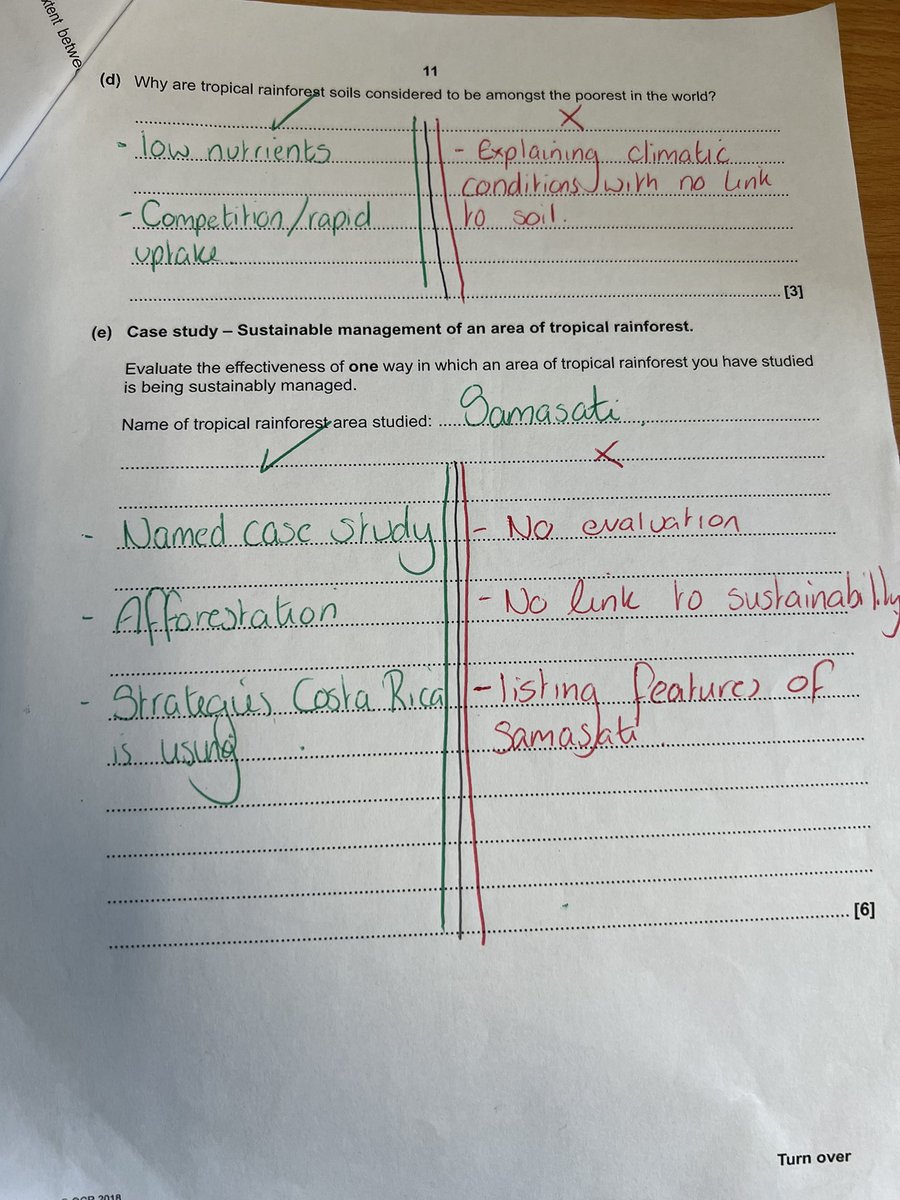 xtent betwe
11
(d) Why are tropical rainforest soils considered to be amongst the poorest in the world?
- low nutrients
- Competition/rapid
uptake
- Explaining climatic
conditions with no link
to soil.
[3]
(e) Case study – Sustainable management of an area of tropical rainforest.
Evaluate the effectiveness of one way in which an area of tropical rainforest you have studied
is being sustainably managed.
Name of tropical rainforest area studied: Samasati
- Named case study
- Afforestation
- Strategies Costa Rica
is using
- No evaluation
- No link to sustainability
- listing features of
Samasati
[6]
Turn over
OCR 2018